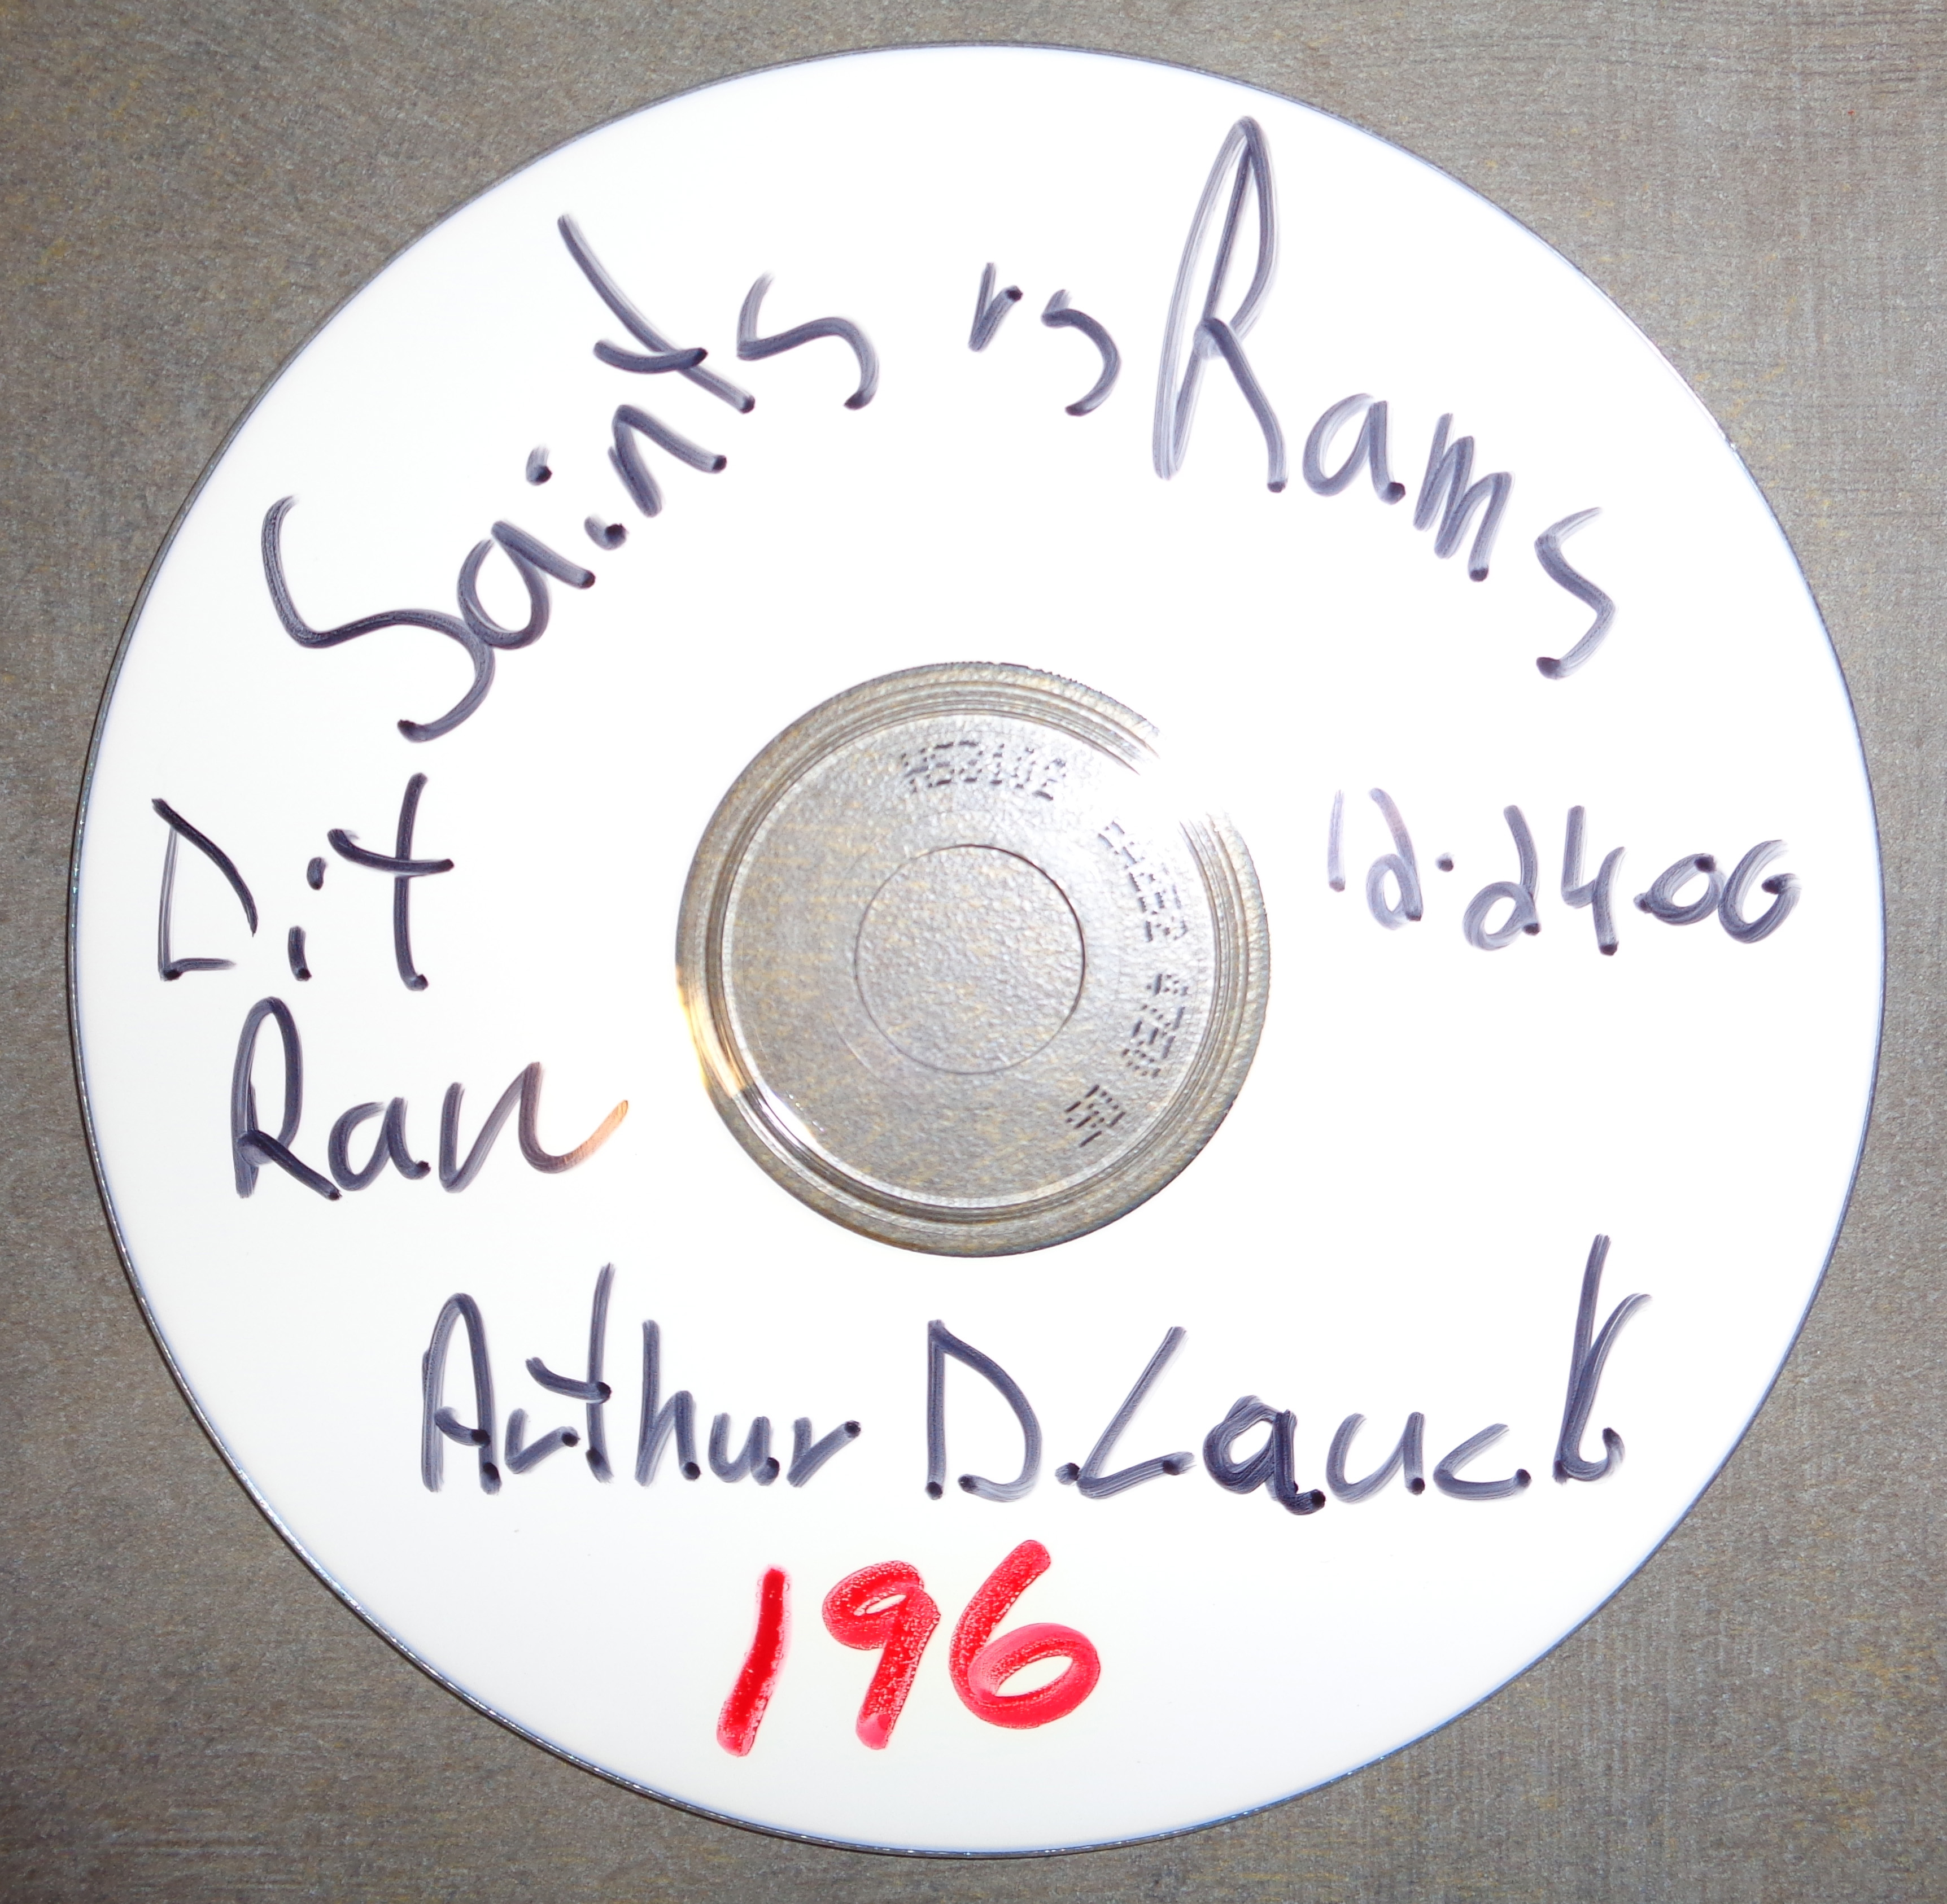 Saints vs Rams
Dit
Ran
12.24.00
Arthur D. Lauck
196